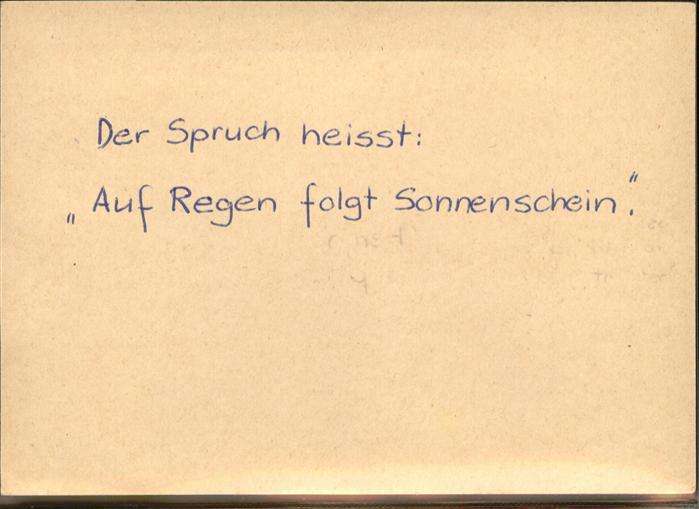 Der Spruch heisst:
„Auf Regen folgt Sonnenschein."